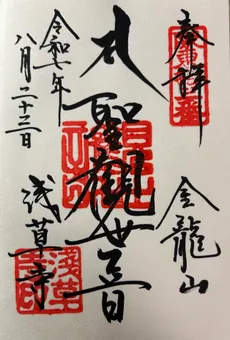 奉拝
金龍山
聖觀世音
浅草寺
令和七年
八月二十三日